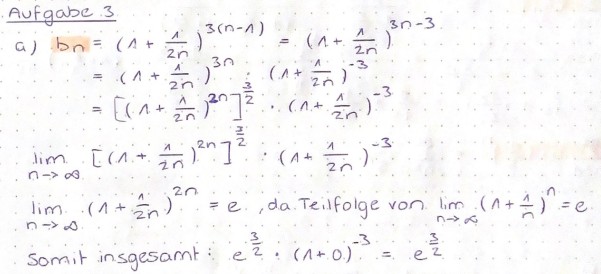 Aufgabe 3
a) bn = (1 + 1/2n)^3(n-1) = (1 + 1/2n)^3n-3
= (1 + 1/2n)^3n · (1 + 1/2n)^-3
= [(1 + 1/2n)^2n]^3/2 · (1 + 1/2n)^-3
lim n→∞ [(1 + 1/2n)^2n]^3/2 · (1 + 1/2n)^-3
lim n→∞ (1 + 1/2n)^2n = e, da Teilfolge von lim n→∞ (1 + 1/n)^n = e
Somit insgesamt: e^3/2 · (1+0)^-3 = e^3/2